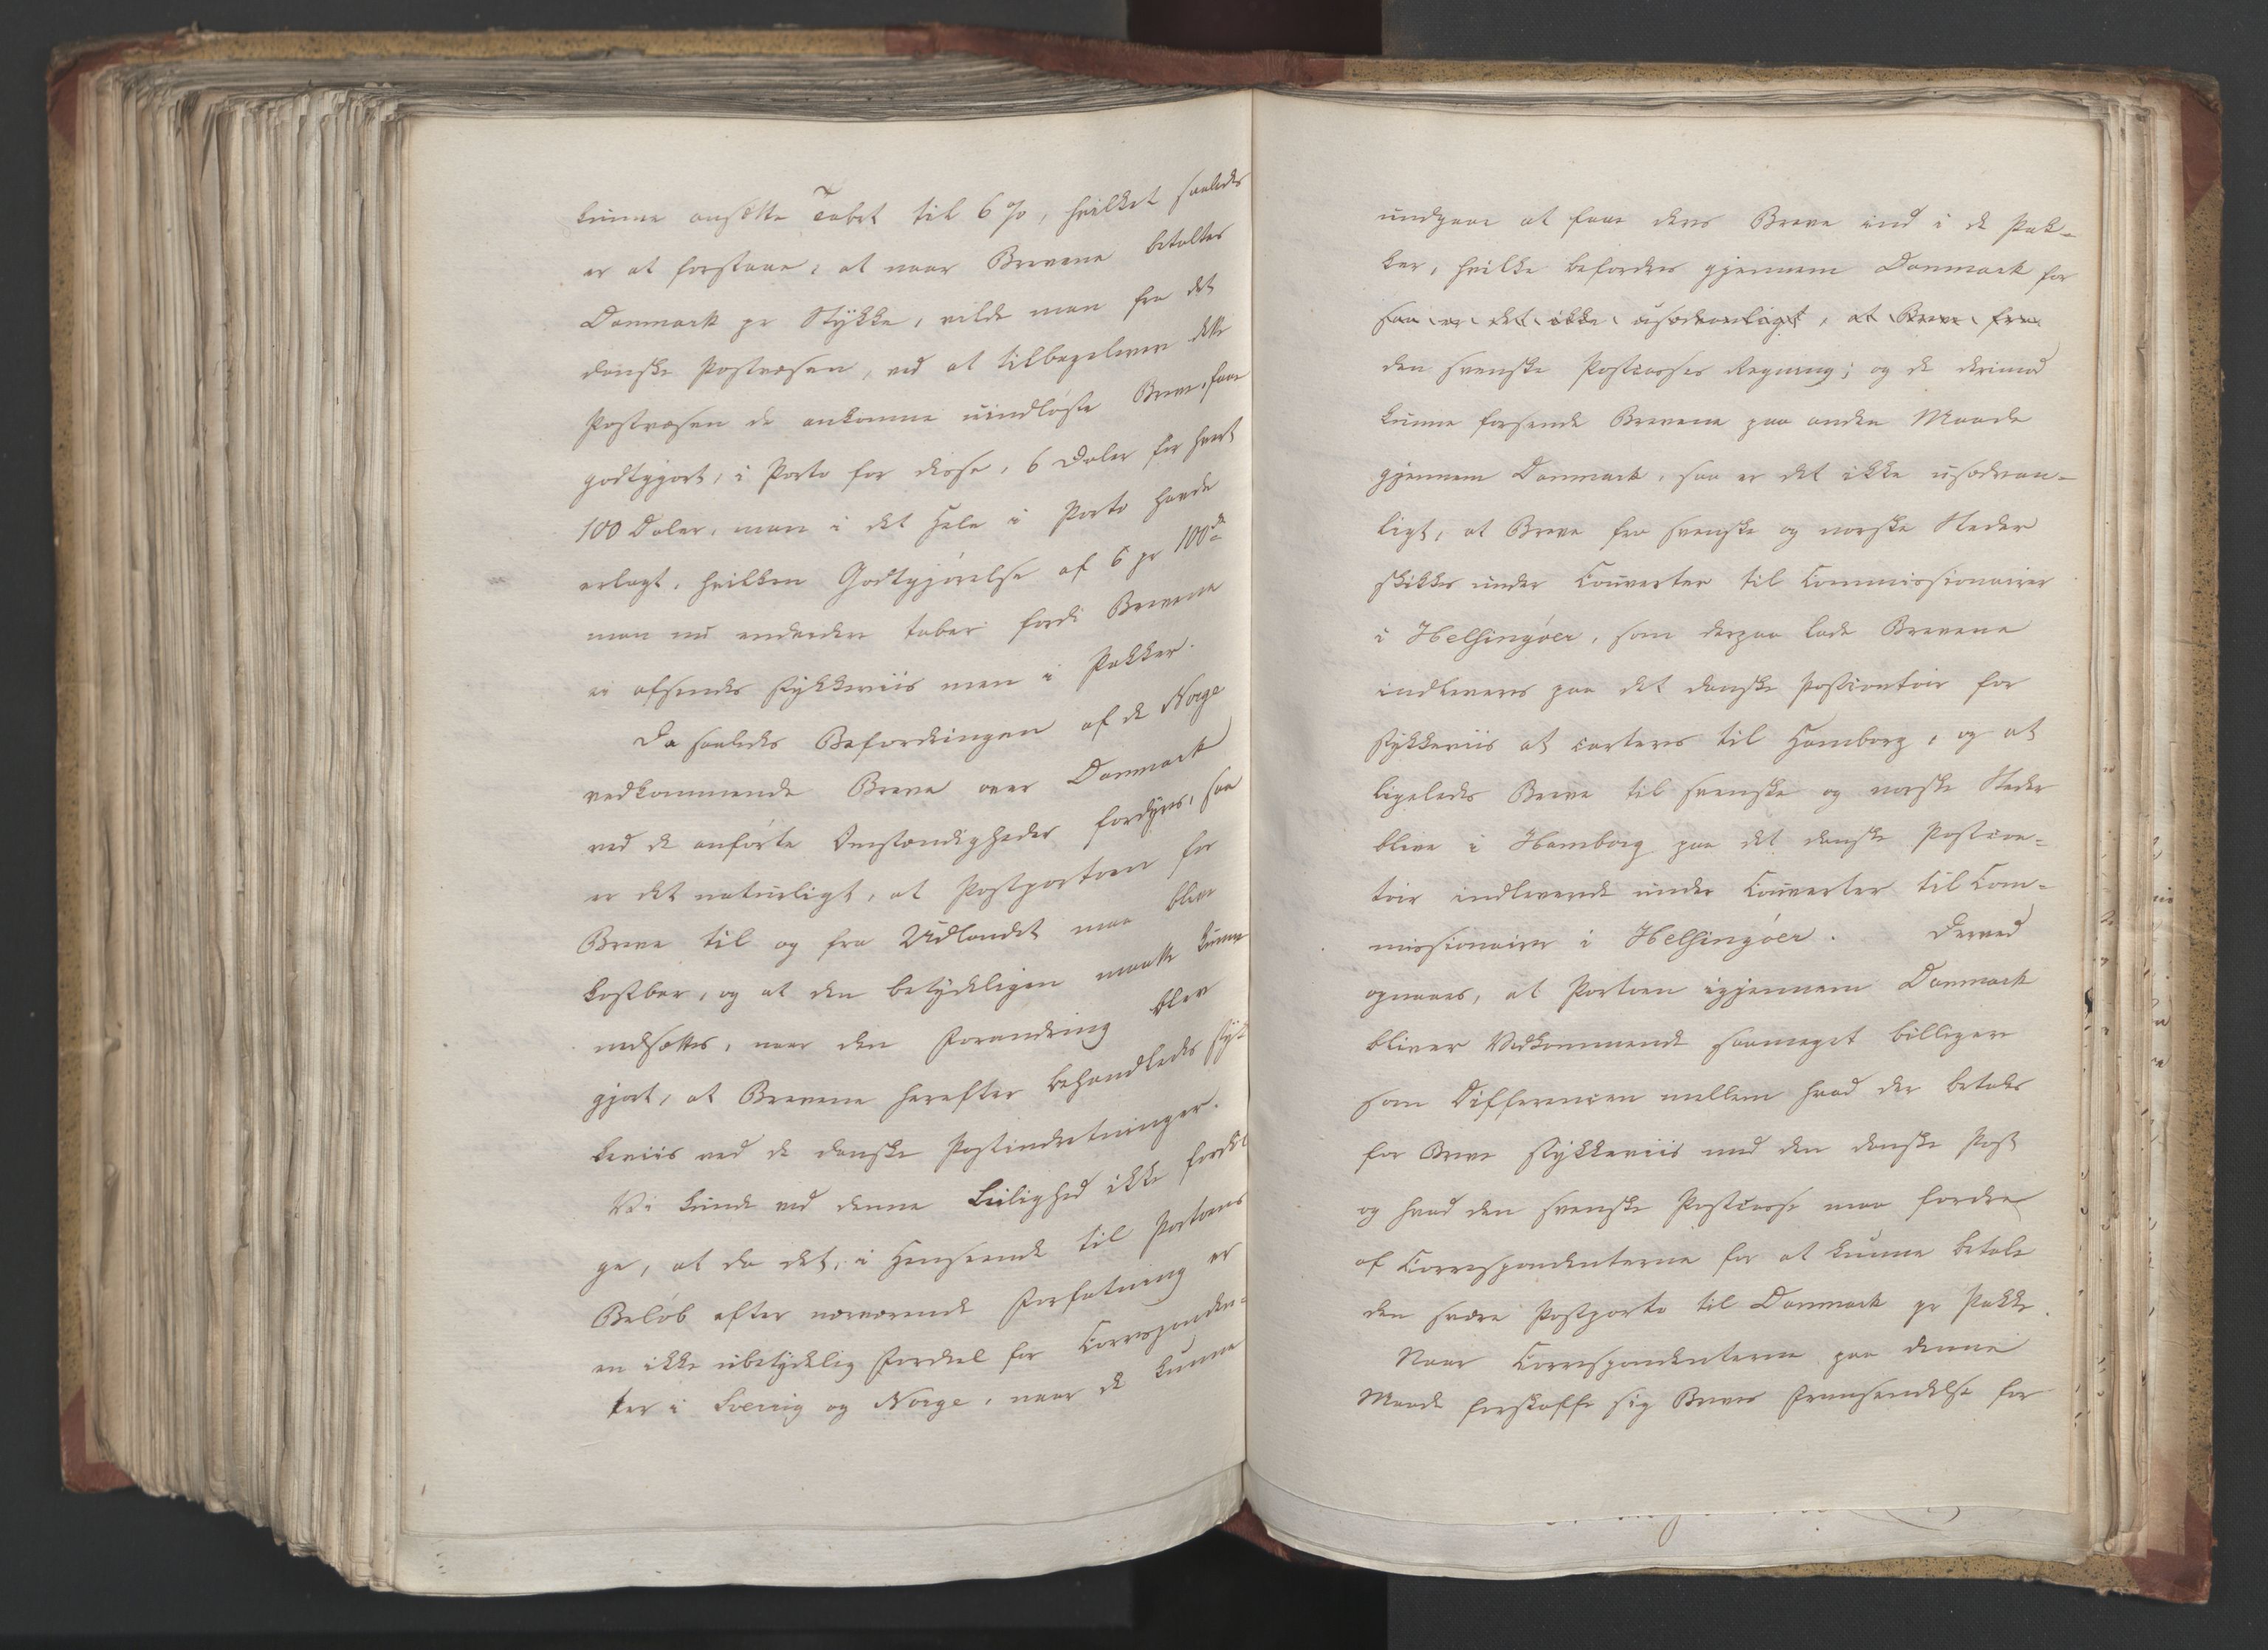 kunne ansætte Tabet til 6 %, hvilket saaledes
er at forstaae, at naar Brevene betaltes
Danmark pr Stykke, vilde man fra det
danske Postvæsen, ved at tilbagelevere dette
Postvæsen de ankomne uindløste Breve, faae
godtgjort, i Porto for disse, 6 Daler for hvert
100 Daler, man i det Hele i Porto havde
erlagt, hvilken Godtgjørelse af 6 pr 100de
man nu enderden taber fordi Brevene
ei afsendes stykkeviis men i Pakker.
Da saaledes Befordringen af de Norge
vedkommende Breve over Danmark
ved de anførte Omstændigheder fordyres, saa
er det naturligt, at Postportoen for
Breve til og fra Udlandet maa blive
kostbar, og at den betydeligen maatte kunne
nedsættes, naar den Forandring blev
gjort, at Brevene herefter behandledes styk
keviis ved de danske Postindretninger.
Vi kunde ved denne Leilighed ikke fordøl
ge, at da det, i Henseende til Portoens
Beløb efter nærværende Forfatning er
en ikke ubetydelig Fordeel for Corresponden-
ter i Sverrig og Norge, naar de kunne
undgaae at faae deres Breve ind i de Pak-
ker, hvilke befordres gjennem Danmark for
saa er det ikke usædvanligt, at Breve fra
den svenske Postcasses Regning; og de derimod
kunne forsende Brevene paa anden Maade
gjennem Danmark, saa er det ikke usædvan-
ligt, at Breve fra svenske og norske Steder
skikkes under Couverter til Commissionairer
i Helsingøer, som derpaa lade Brevene
indleveres paa det danske Postcontoir for
stykkeviis at carteres til Hamborg, og at
ligeledes Breve til svenske og norske Steder
blive i Hamborg paa det danske Postcon-
toir indleverede under Couverter til Com-
missionairer i Helsingøer. Derved
opnaaes, at Portoen igjennem Danmark
bliver Vedkommende saameget billigere
som Differencen mellem hvad der betales
for Breve stykkeviis med den danske Post
og hvad den svenske Postcasse maa fordre
af Correspondenterne for at kunne betale
den svære Postporto til Danmark pr Pakke.
Naar Correspondenterne paa denne
Maade forskaffe sig Breves Fremsendelse for